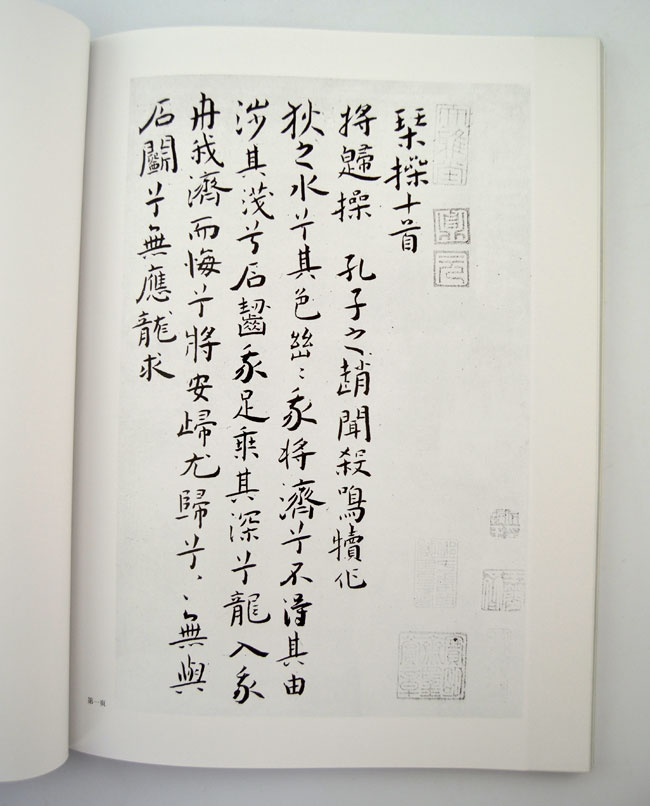 琹操十首
將歸操 孔子之趙聞殺鳴犢作
狄之水兮其色幽〻我將濟兮不得其由
涉其淺兮石齧我足乘其深兮龍入我
舟我濟而悔兮將安歸尤歸兮〻〻無與
石鬭兮無應龍求
第一頁